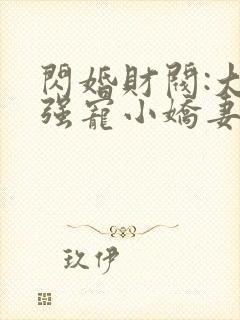 閃婚財閥:大
强寵小嬌妻
玖伊